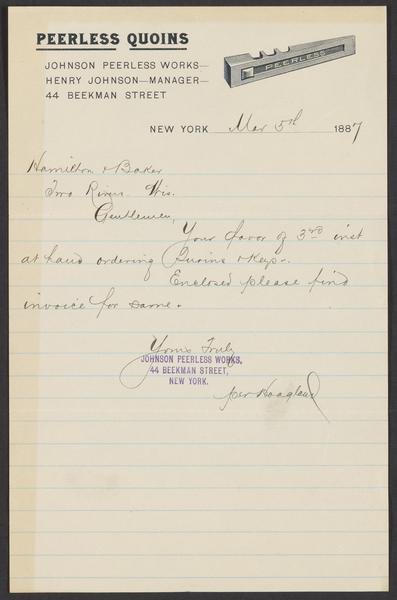 PEERLESS QUOINS
JOHNSON PEERLESS WORKS—
HENRY JOHNSON—MANAGER—
44 BEEKMAN STREET
PEERLESS
NEW YORK Mar 5th 1887
Hamilton & Baker
Two Rivers Wis.
Gentlemen,
Your favor of 3rd inst
at hand ordering Quoins & Keys.
Enclosed please find
invoice for same.
Yours Truly
JOHNSON PEERLESS WORKS,
44 BEEKMAN STREET,
NEW YORK.
per Hoagland